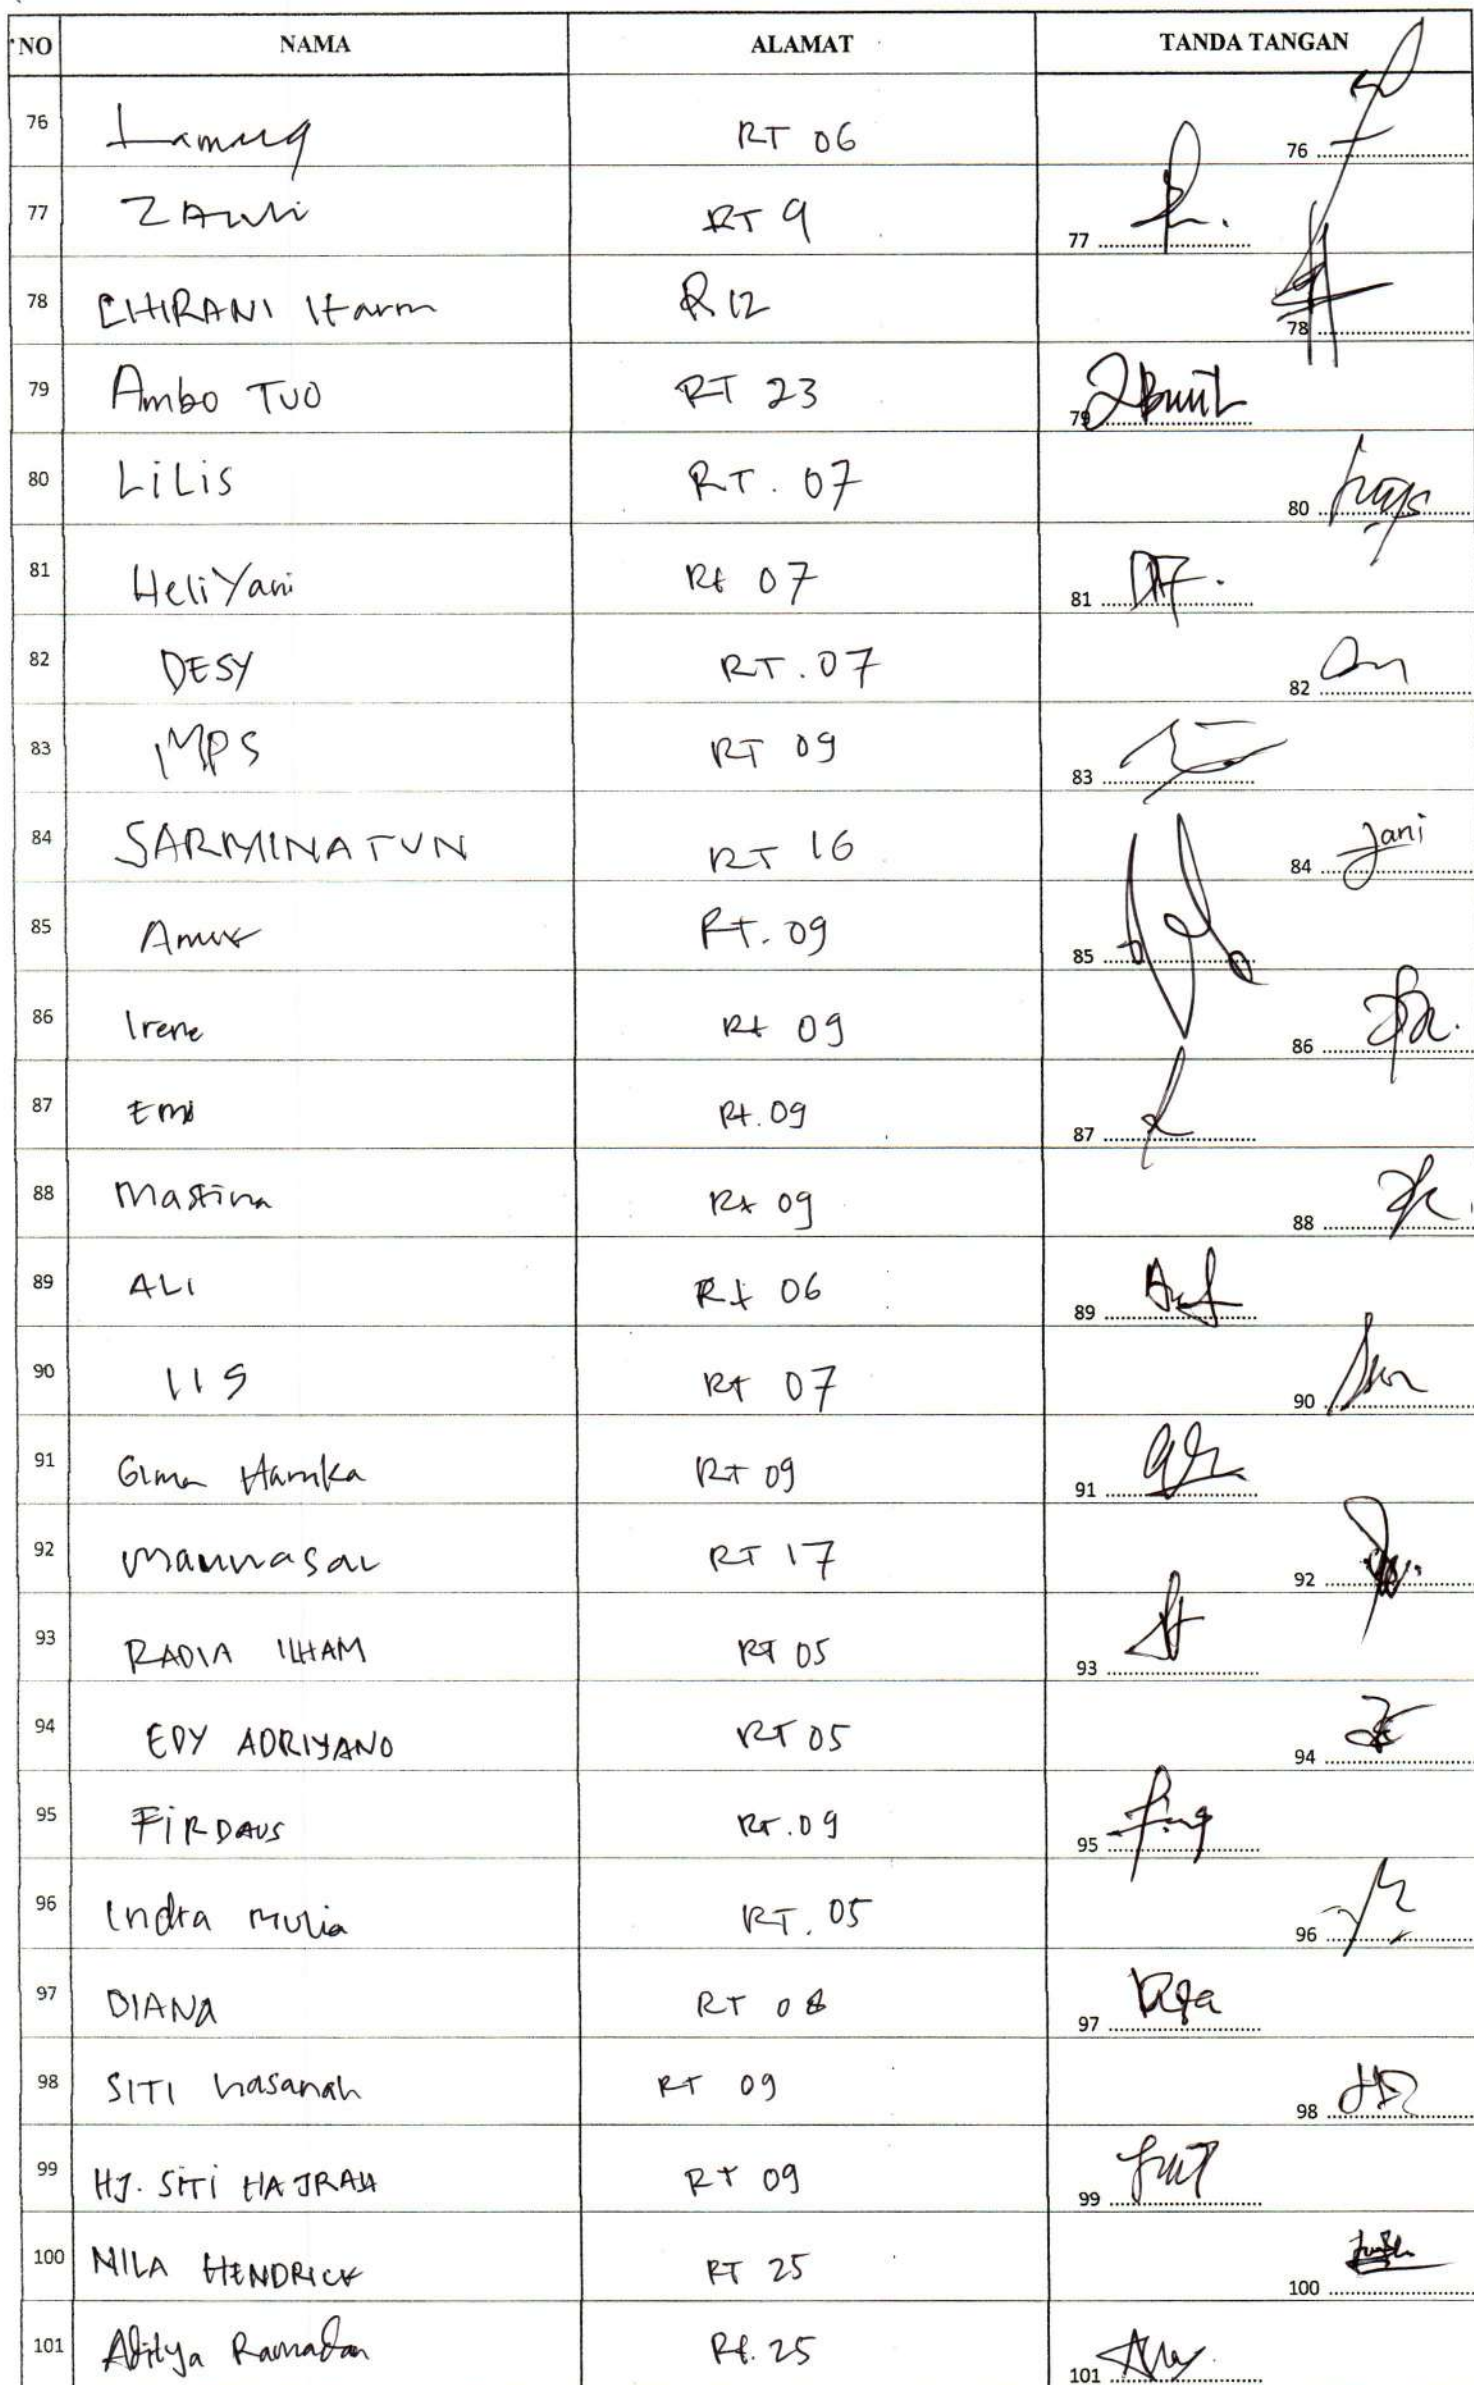 NO NAMA ALAMAT TANDA TANGAN
76 Lamang RT 06 76
77 ZAWLi RT 9 77
78 CHIRANI Harm R 12 78
79 Ambo TUO RT 23 79
80 LiLis RT. 07 80
81 HeliYani Rt 07 81
82 DESY RT. 07 82
83 MPS RT 09 83
84 SARMINATUN RT 16 84 Jani
85 RT. 09 85
86 Irene Rt 09 86
87 Emi Rt. 09 87
88 Mastina Rt 09 88
89 ALI Rt 06 89
90 IIS Rt 07 90
91 Hamka RT 09 91
92 RT 17 92
93 RADIA ILHAM RT 05 93
94 EDY ADRIYANO RT 05 94
95 FiRDAUS RT. 09 95
96 Indra Mulia RT. 05 96
97 DIANA RT 08 97
98 SITI hasanah RT 09 98
99 HJ. SiTi HAJRAH RT 09 99
100 NILA HENDRICK RT 25 100
101 Aditya Ramadan Rt. 25 101